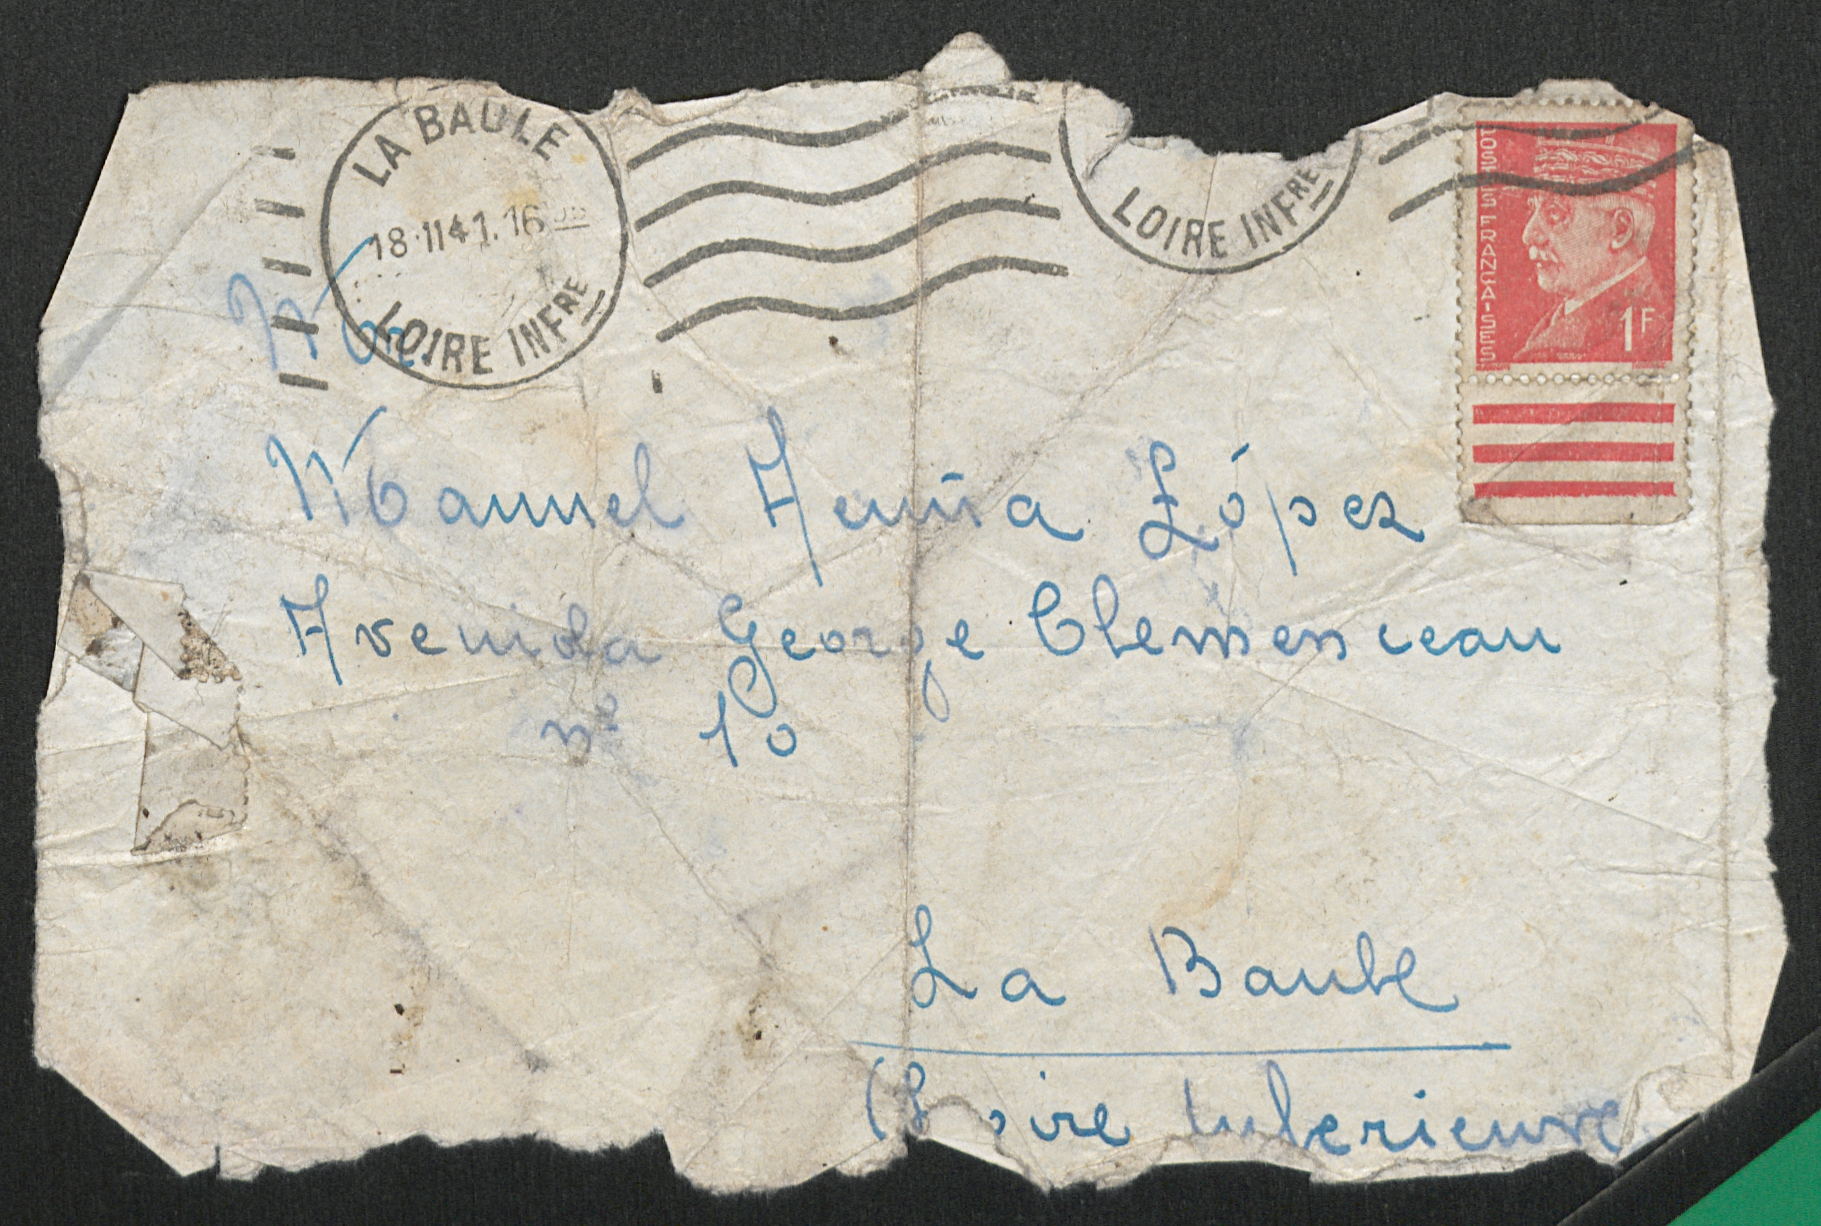 LA BAULE
18·1141. 16
LOIRE INFRE
LOIRE INFRE
POSTES FRANÇAISES
1F
Mon
Manuel López
Avenida George Clemenceau
nº 10
La Baule
(Loire Inferieure